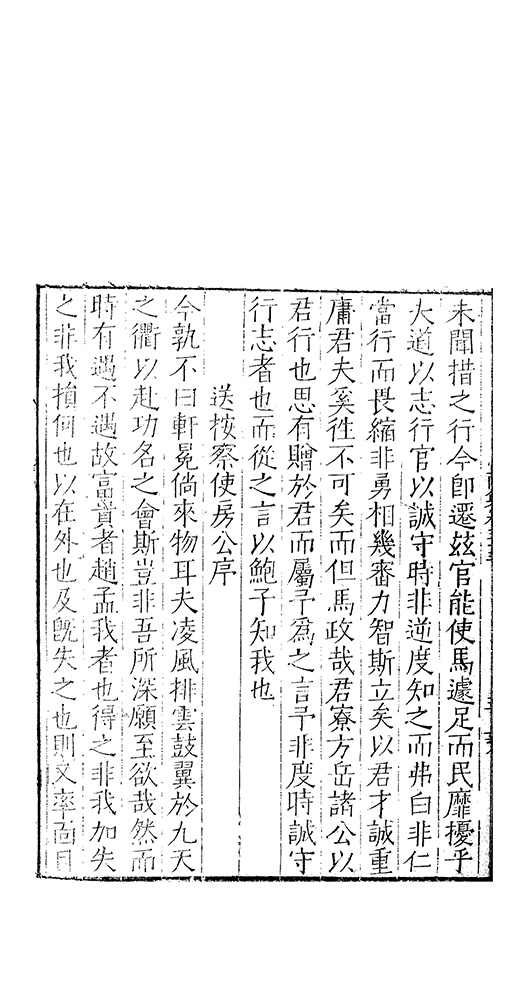 未聞措之行今卽遷兹官能使馬遽足而民靡擾乎
大道以志行官以誠守時非逆度知之而弗白非仁
當行而畏縮非勇相幾審力智斯立矣以君才誠重
庸君夫奚徃不可矣而但馬政哉君寮方岳諸公以
君行也思有贈於君而屬予爲之言予非度時誠守
行志者也而從之言以鮑子知我也
送按察使房公序
今孰不曰軒冕倘來物耳夫凌風排雲鼓翼於九天
之衢以赴功名之會斯豈非吾所深願至欲哉然而
時有遇不遇故富貴者趙孟我者也得之非我加失
之非我損何也以在外也及旣失之也則又率靣目